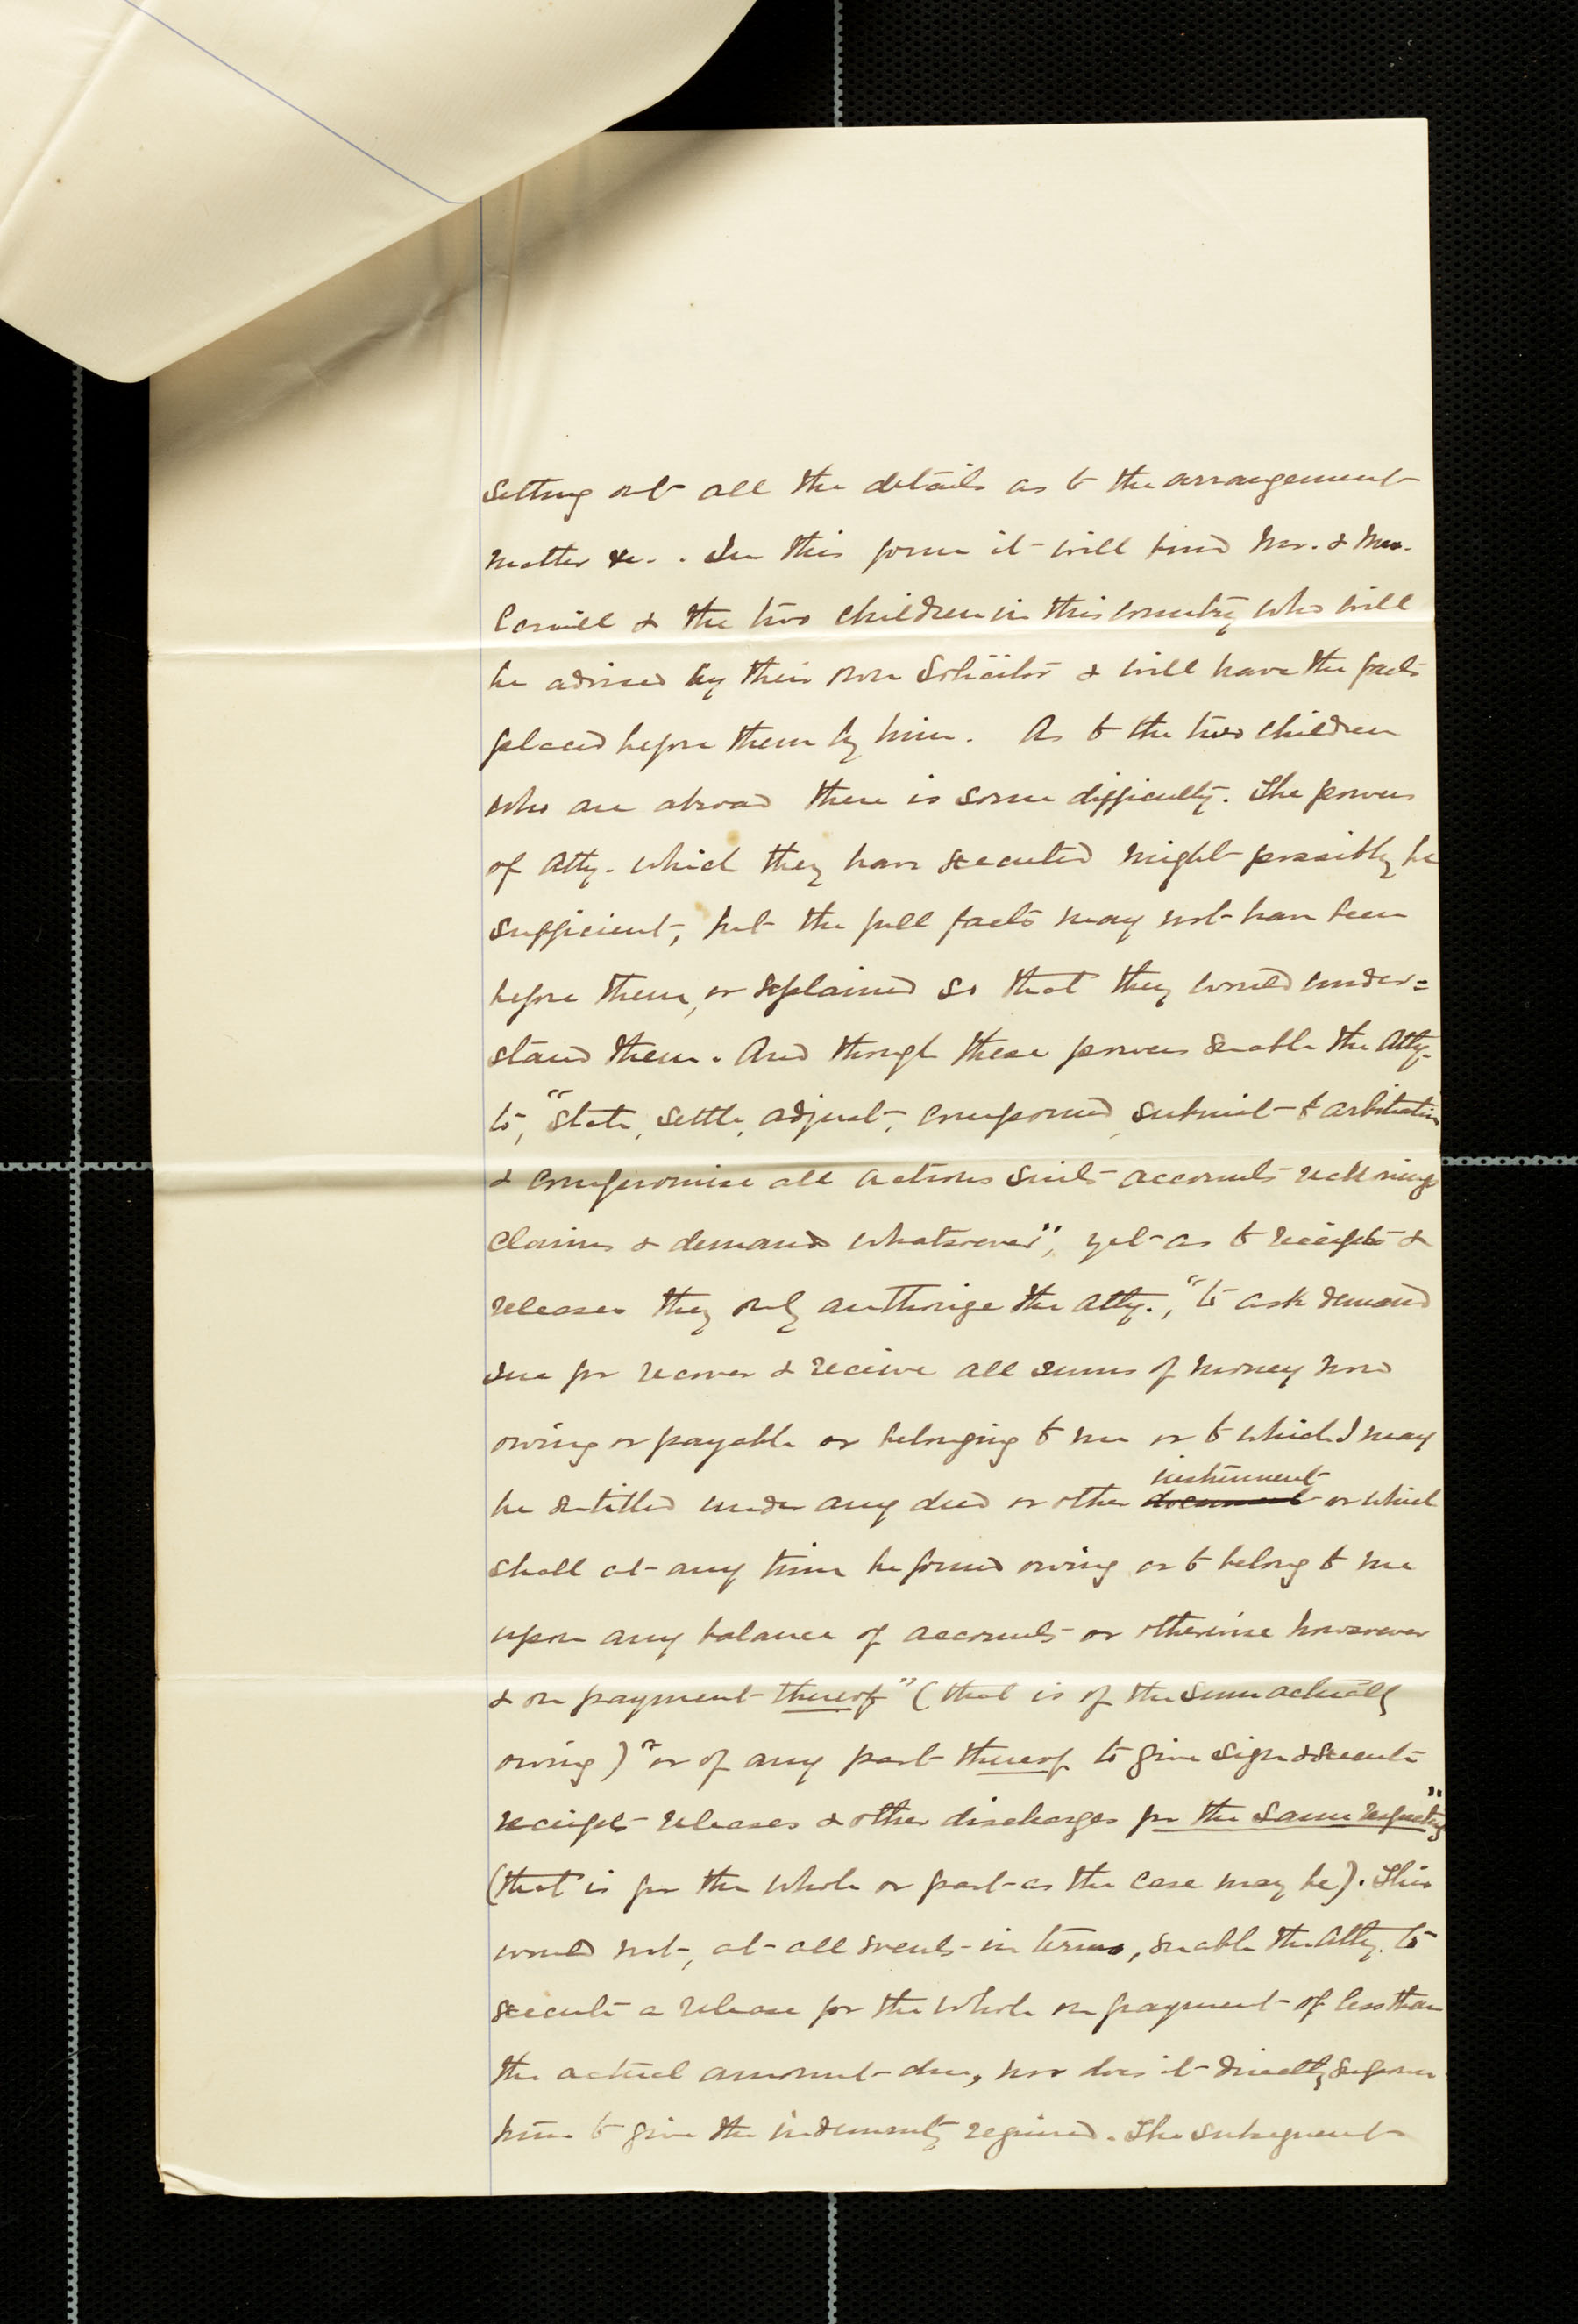 setting out all the details as to the arrangement
matter &c. . In this form it will bind Mr. & Mrs.
& the two children in this country who will
be advised by their own Solicitor & will have the facts
placed before them by him. As to the two children
who are abroad there is some difficulty. The powers
of Atty. which they have executed might possibly be
sufficient, but the full facts may not have been
before them, or explained so that they could under=
stand them. And though these powers enable the Atty.
to, "state, settle, adjust, compound, submit to arbitration
& compromise all actions suits accounts reckonings
claims & demands whatsoever", yet as to receipts &
releases they only authorize the Atty., "to ask demand
sue for recover & receive all sums of money now
owing or payable or belonging to me or to which I may
be entitled under any deed or other document instrument or which
shall at any time be found owing or to belong to me
upon any balance of accounts or otherwise howsoever
& on payment thereof" (that is of the sum actually
owing) "or of any part thereof to give sign & execute
receipts releases & other discharges for the same respectively"
(that is for the whole or part as the case may be). This
would not, at all events in terms, enable the Atty. to
execute a release for the whole on payment of less than
the actual amount due, nor does it directly empower
him to give the indemnity required. The subsequent